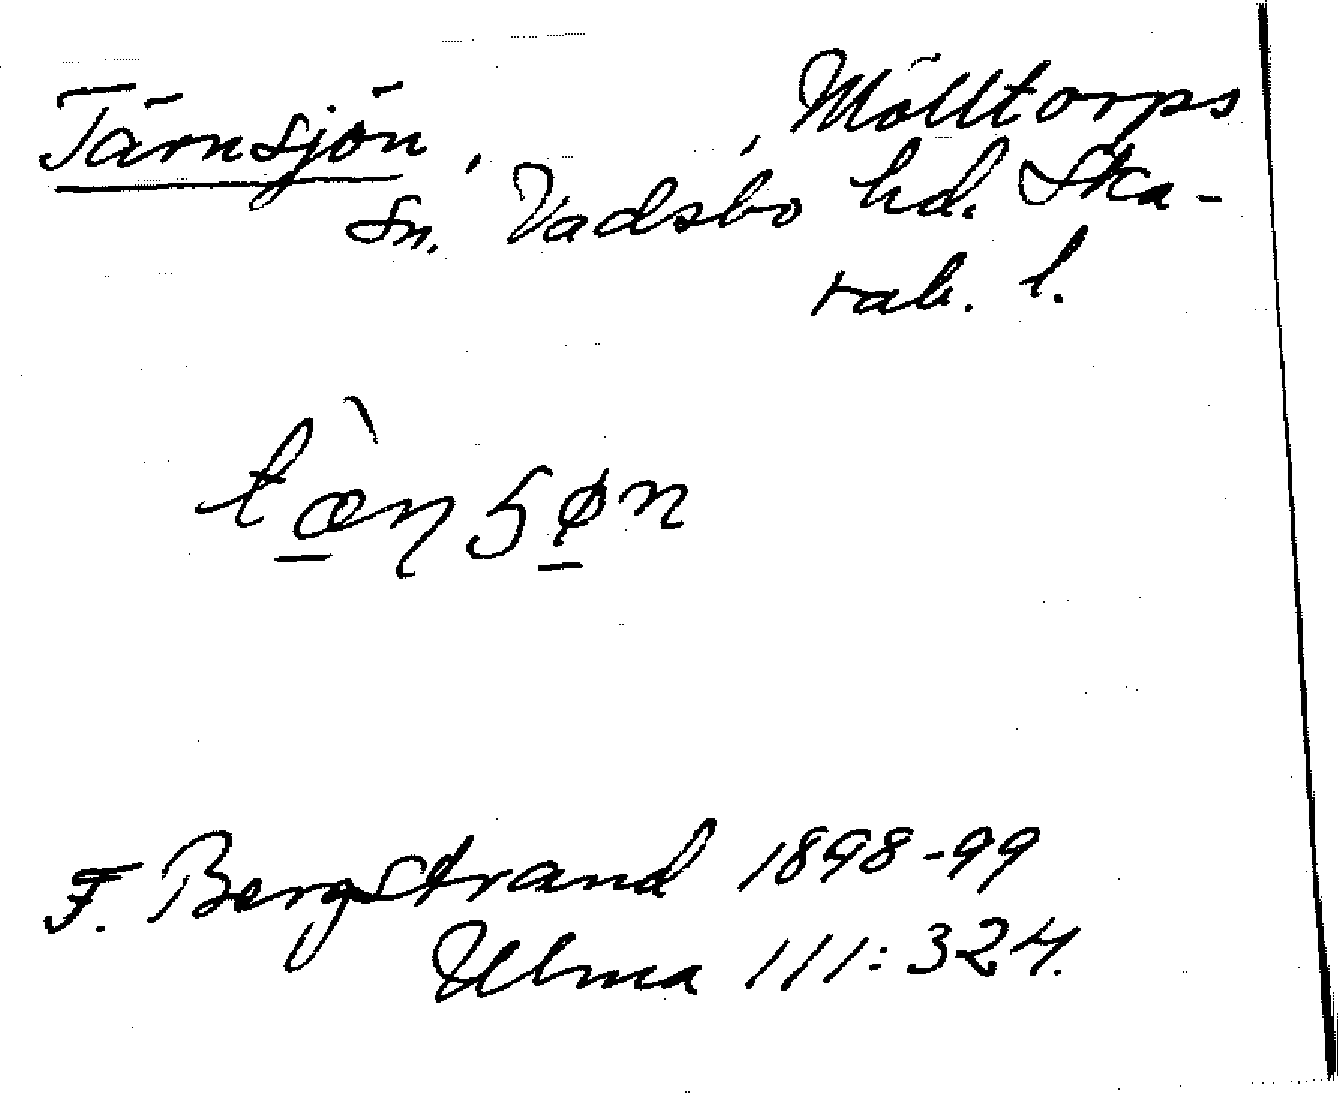 Tärnsjön, , Mölltorps
Sn. Vadsbo hd. Ska-
rab. l.
F. Bergstrand 1898-99
Ulma 111:324.